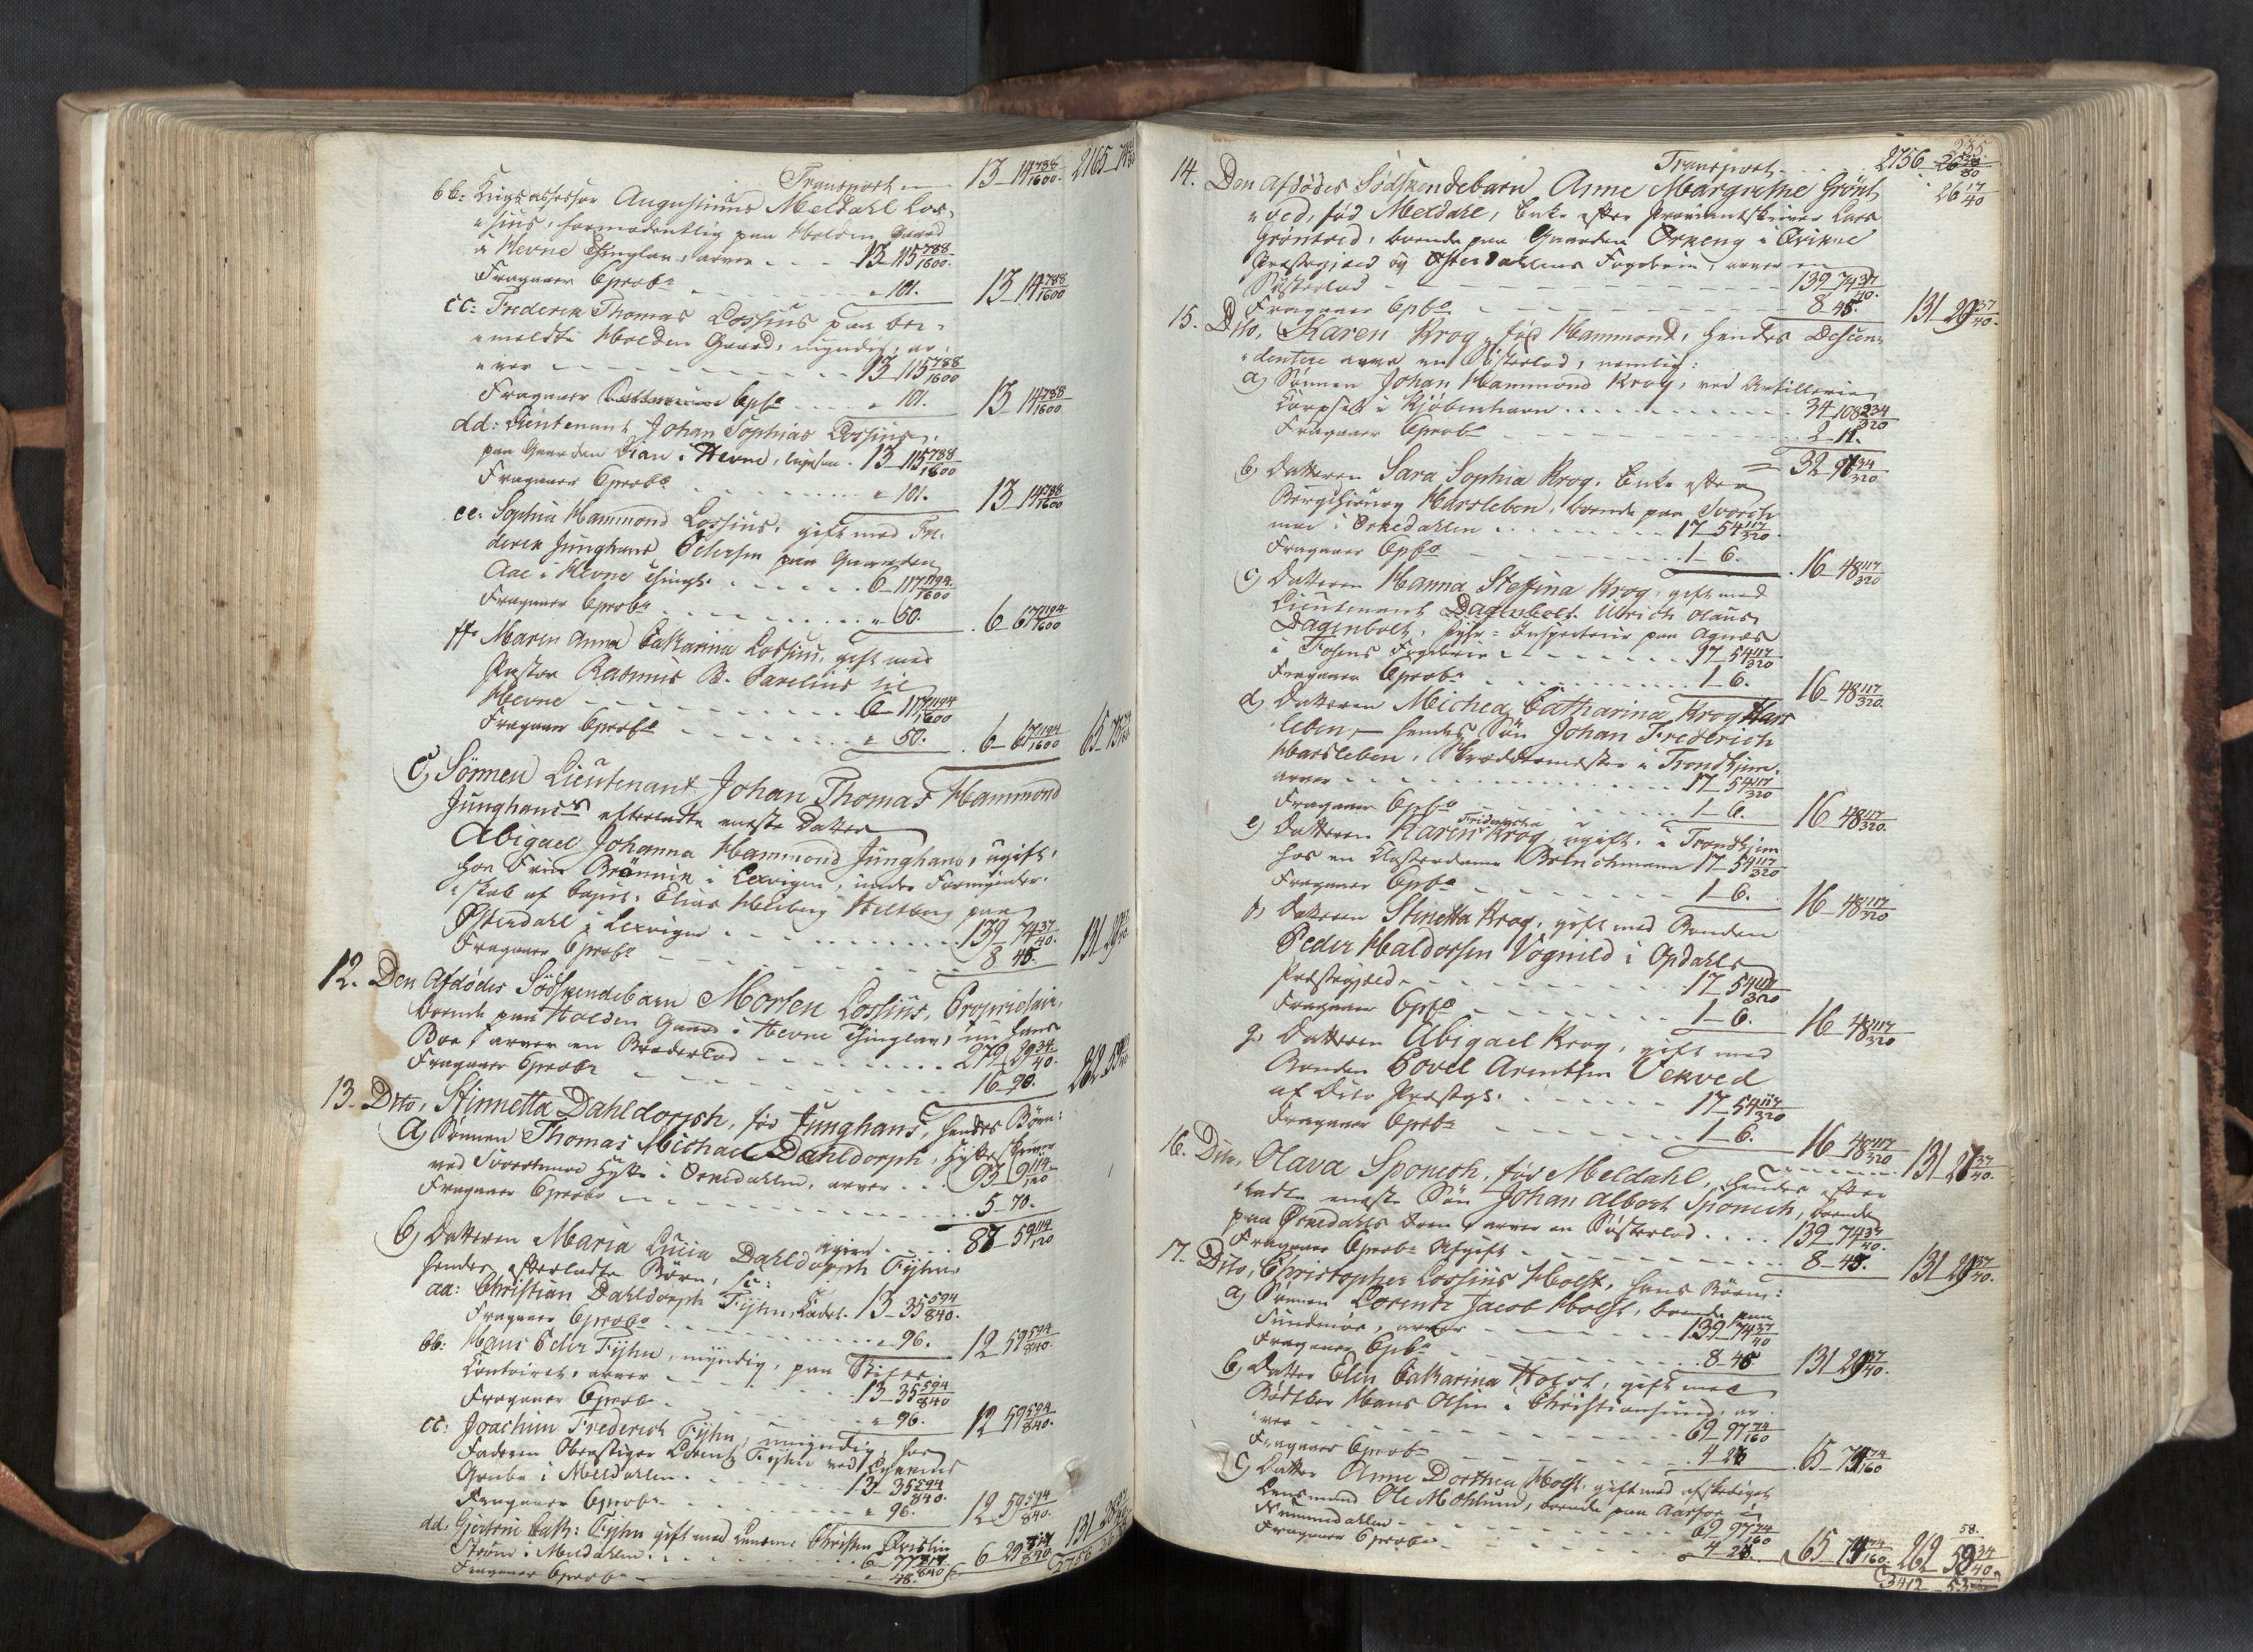 Transport 13 - 14 788/1600 2165
bb: Krigsassessor Augustinus Meldahl Los-
"sius, formodentlig paa Holden Gaard
i Hevne Thinglav, arver 13 - 115 788/1600
Fragaaer 6 proCt " 101. 13 - 14 788/1600
cc: Frederik Thomas Lossius paa be-
"meldte Holden Gaard, myndig, ar-
"ver 13 - 115 788/1600
Fragaaer 6 pCt " 101. 13 14 788/1600
dd: Lieutenant Johan Sophias Lossius,
paa Gaarden i Hevne, ligesaa 13 - 115 788/1600
Fragaaer 6 proCt " 101. 13 14 788/1600
ee: Sophia Hammond Lossius, gift med Fre-
derik Junghans Petersen paa Gaarden
Aae i Hevne Thingl. 6 - 117 1194/1600
Fragaaer 6 proCt " 50. 6 - 67 1194/1600
ff: Maren Anna Catharina Lossius, gift med
Pastor Rasmus B. Parelius til
Hevne 6 - 117 1194/1600
Fragaaer 6 proCt " 50. 6 - 67 1194/1600 65 - 75
c) Sønnen Lieutenant Johan Thomas Hammond
Junghans's efterladte eneste Datter
Abigael Johanna Hammond Junghans, ugift,
hos Frue Brønnik i Lexvigen, under Formynder-
"skab af Elias Heiberg Heltberg paa
Østerdahl i Lexvigen 139 - 74 37/40.
Fragaaer 6 proCt 8 45. 131 - 29
12. Den Afdødes Sødskendebarn Morten Lossius, Proprietair,
boende paa Holden Gaard i Hevne Thinglav, nu hans
Boe, arver en Broderlod 279 29 34/40.
Fragaaer 6 proCt 16 - 90. 262 - 59
13. Dito, Stinnetta Dahldorph, fød Junghans, hendes Børn:
a) Sønnen Thomas Michael Dahldorph, Hytteskriver
ved Svorkmoe Hytte i Orkedahlen, arver 93 - 9 114/120
Fragaaer 6 proCt 5 - 70.
87 - 59 114/120
b) Datteren Maria Lucia Dahldorph Fyhn,
hendes efterladte Børn,
aa: Christian Dahldorph Fyhn, Cadet 13 - 35 594/840.
Fragaaer 6 proCt " 96. 12 59 594/840.
bb: Hans Peder Fyhn, myndig, paa Stifts-
Contoiret, arver 13 - 35 594/840
Fragaaer 6 proCt " 96. 12 59 594/840.
cc: Joachim Frederich Fyhn, umyndig, hos
Faderen Oberstiger Lorentz Fyhn ved Løkkens
Grube i Meldahlen 13 - 35 594/840.
Fragaaer 6 proCt " 96. 12 59 594/840.
dd. Cath: Fyhn gift med Christen
i Meldahlen 6 - 77 817/840
Fragaaer 6 proCt " 48. 6 29 817/840 131
2756
235
14. Transport 2756 26 17/40
Den Afdødes Sødskendebarn Anne Margrethe Grønt-
"ved, fød Meldahl, Enke efter Proviantskriver Lars
Grøntved, boende paa Gaarden Orkeng i Qvikne
Præstegjæld og Østerdahlens Fogderie, arver en
Søsterlod 139 74 37/40.
Fragaaer 6 pCt 8 45. 131 - 29 37/40.
15. Dito, Karen Krog, fød Hammond, hendes Descen-
"dentere arve en Søsterlod, nemlig:
a) Sønnen Johan Hammond Krog, ved Artillerie
Corpset i Kjøbenhavn 34 108 234/320
Fragaaer 6 proCt 2 - 11.
32 - 97 34/320
b) Datteren Sara Sophia Krog, Enke efter
Bergchirurg Harsleben, boende paa Svork-
moe i Orkedahlen 17 - 54 117/320.
Fragaaer 6 pCt 1 - 6. 16 - 48 117/320
c) Datteren Hanna Steffina Krog, gift med
Lieutenant Dagenbolt Ulrich Olaus
Dagenbolt, Fyhr-Inspecteur paa Agnæs
i Fosens Fogderie 17 - 54 117/320
Fragaaer 6 proCt 1 - 6. 16 - 48 117/320
d) Datteren Michea Catharina Krog Hars-
leben, - hendes Søn Johan Frederich
Harsleben, Skræddermester i Trondhjem,
arver 17 - 54 117/320
Fragaaer 6 pCt 1 - 6. 16 48 117/320.
e) Datteren Karen Fridericha Krog, ugift, i Trondhjem
hos en Klosterdame Brinchmann 17 - 54 117/320
Fragaaer 6 pCt 1 - 6. 16 - 48 117/320
f) Datteren Stinetta Krog, gift med Bonden
Peder Haldorsen Vognild i Opdahls
Præstegjeld 17 - 54 117/320
Fragaaer 6 pCt 1 - 6. 16 - 48 117/320
g) Datteren Abigael Krog, gift med
Bonden Povel Arentsen Vekved
af Dito Præstgl. 17 - 54 117/320
Fragaaer 6 proCt 1 - 6. 16 - 48 117/320 131 - 28 37/40.
16. Dito, Olava Sponich, fød Meldahl, hendes efter-
"ladte eneste Søn Johan Albert Sponich, boende
paa Orkedahls Øren, arver en Søsterlod 139 - 74 37/40.
Fragaaer 6 proCt Afgift 8 - 45. 131 29 37/40.
17. Dito, Christopher Lossius Holst, hans Børn:
a) Sønnen Lorentz Jacob Holst, boende paa
Sundmør, arver 139 - 74 37/40
Fragaaer 6 pCt 8 - 45 131 29 37/40.
b) Datter Elen Catharina Holst, gift med
Bødker Hans Olsen i Christiansund, ar-
"ver 69 - 97 74/160
Fragaaer 6 proCt 4 - 23 65 - 74 74/160
c) Datter Anne Dorthea Holst, gift med afskediget
Lensmand Ole Mohlund, boende paa Aarfor i
Nummedahlen 69 - 97 74/160
Fragaaer 6 proCt 4 - 23. 65 74 74/160 262 58. 59 34/40.
3412 - 53